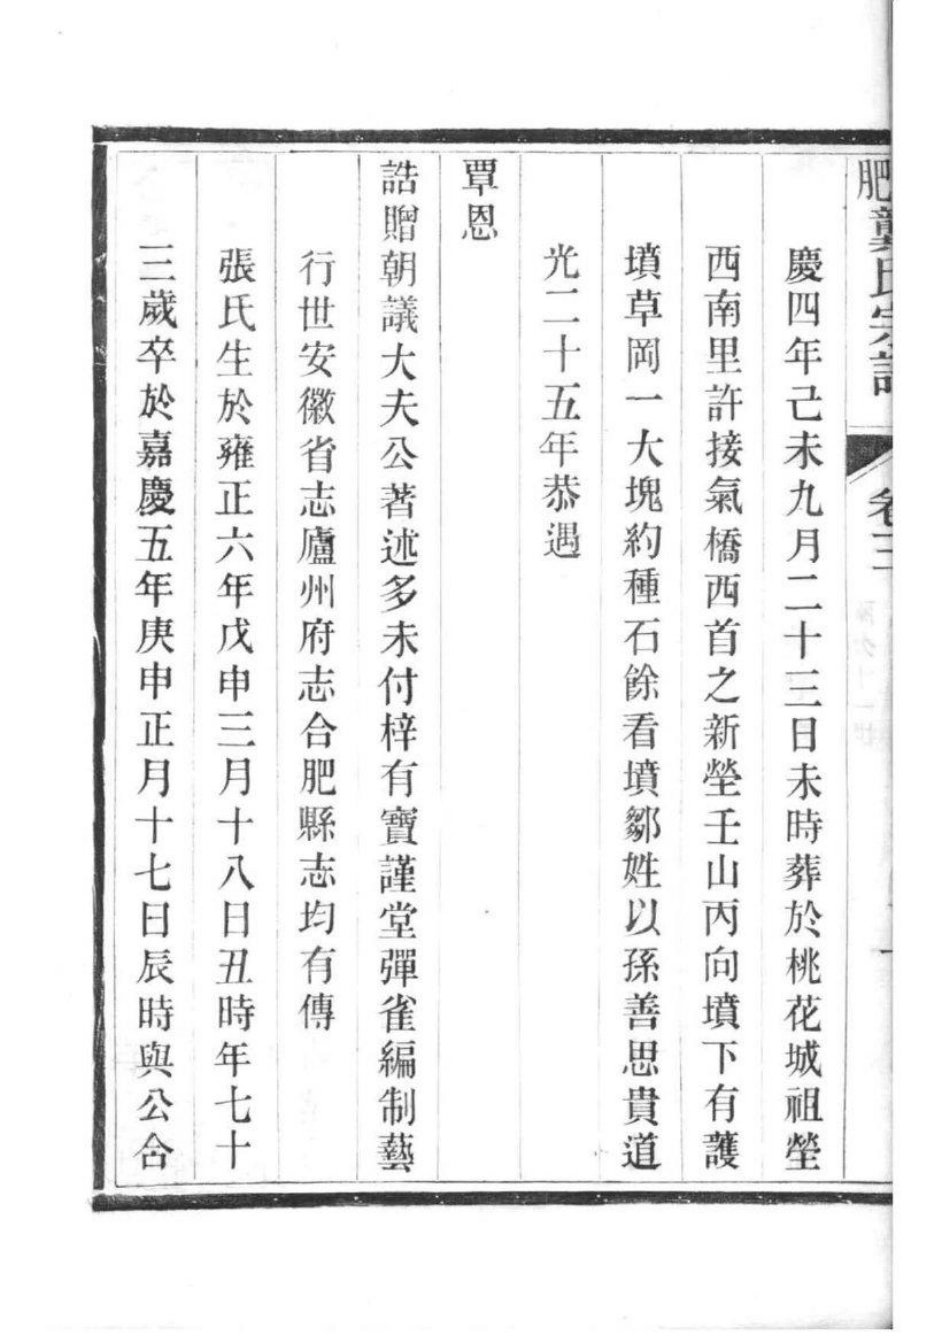 肥龔氏宗譜 卷三
慶四年己未九月二十三日未時葬於桃花城祖塋
西南里許接氣橋西首之新塋壬山丙向墳下有護
墳草岡一大塊約種石餘看墳鄒姓以孫善思貴道
光二十五年恭遇
覃恩
誥贈朝議大夫公著述多未付梓有寶謹堂彈雀編制藝
行世安徽省志廬州府志合肥縣志均有傳
張氏生於雍正六年戊申三月十八日丑時年七十
三歲卒於嘉慶五年庚申正月十七日辰時與公合